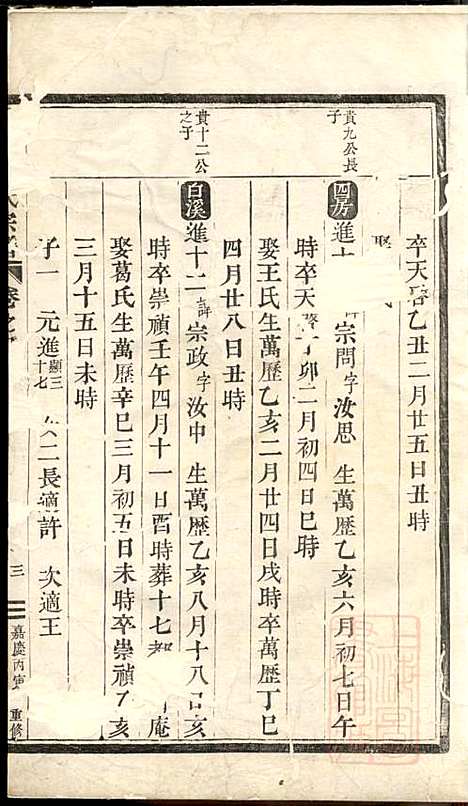 卒天啓乙丑二月廿五日丑時
娶
貴九公長子
四房進十 諱宗問字汝思 生萬歷乙亥六月初七日午
時卒天啓丁卯二月初四日巳時
娶王氏生萬歷乙亥二月廿四日戌時卒萬歷丁巳
四月廿八日丑時
貴十二公之子
白溪進十二諱宗政字汝中 生萬歷乙亥八月十八日亥
時卒崇禎壬午四月十一日酉時葬十七都 庵
娶葛氏生萬歷辛巳三月初五日未時卒崇禎 亥
三月十五日未時
子一 元進顯三十七 二長適許 次適王
氏宗譜 卷之
三
嘉慶丙寅 重修